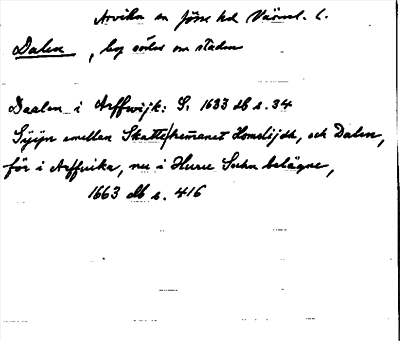 Arvika sn Jösse hd Värml. l.
Dalen, lag söder om staden
Daalen i Arffwijk: S. 1633 db s. 34
Sÿÿn emellan Skatte hemanet Homelijdh, och Dalen,
för i Arffuika, nu i Sochn belägne,
1663 db s. 416